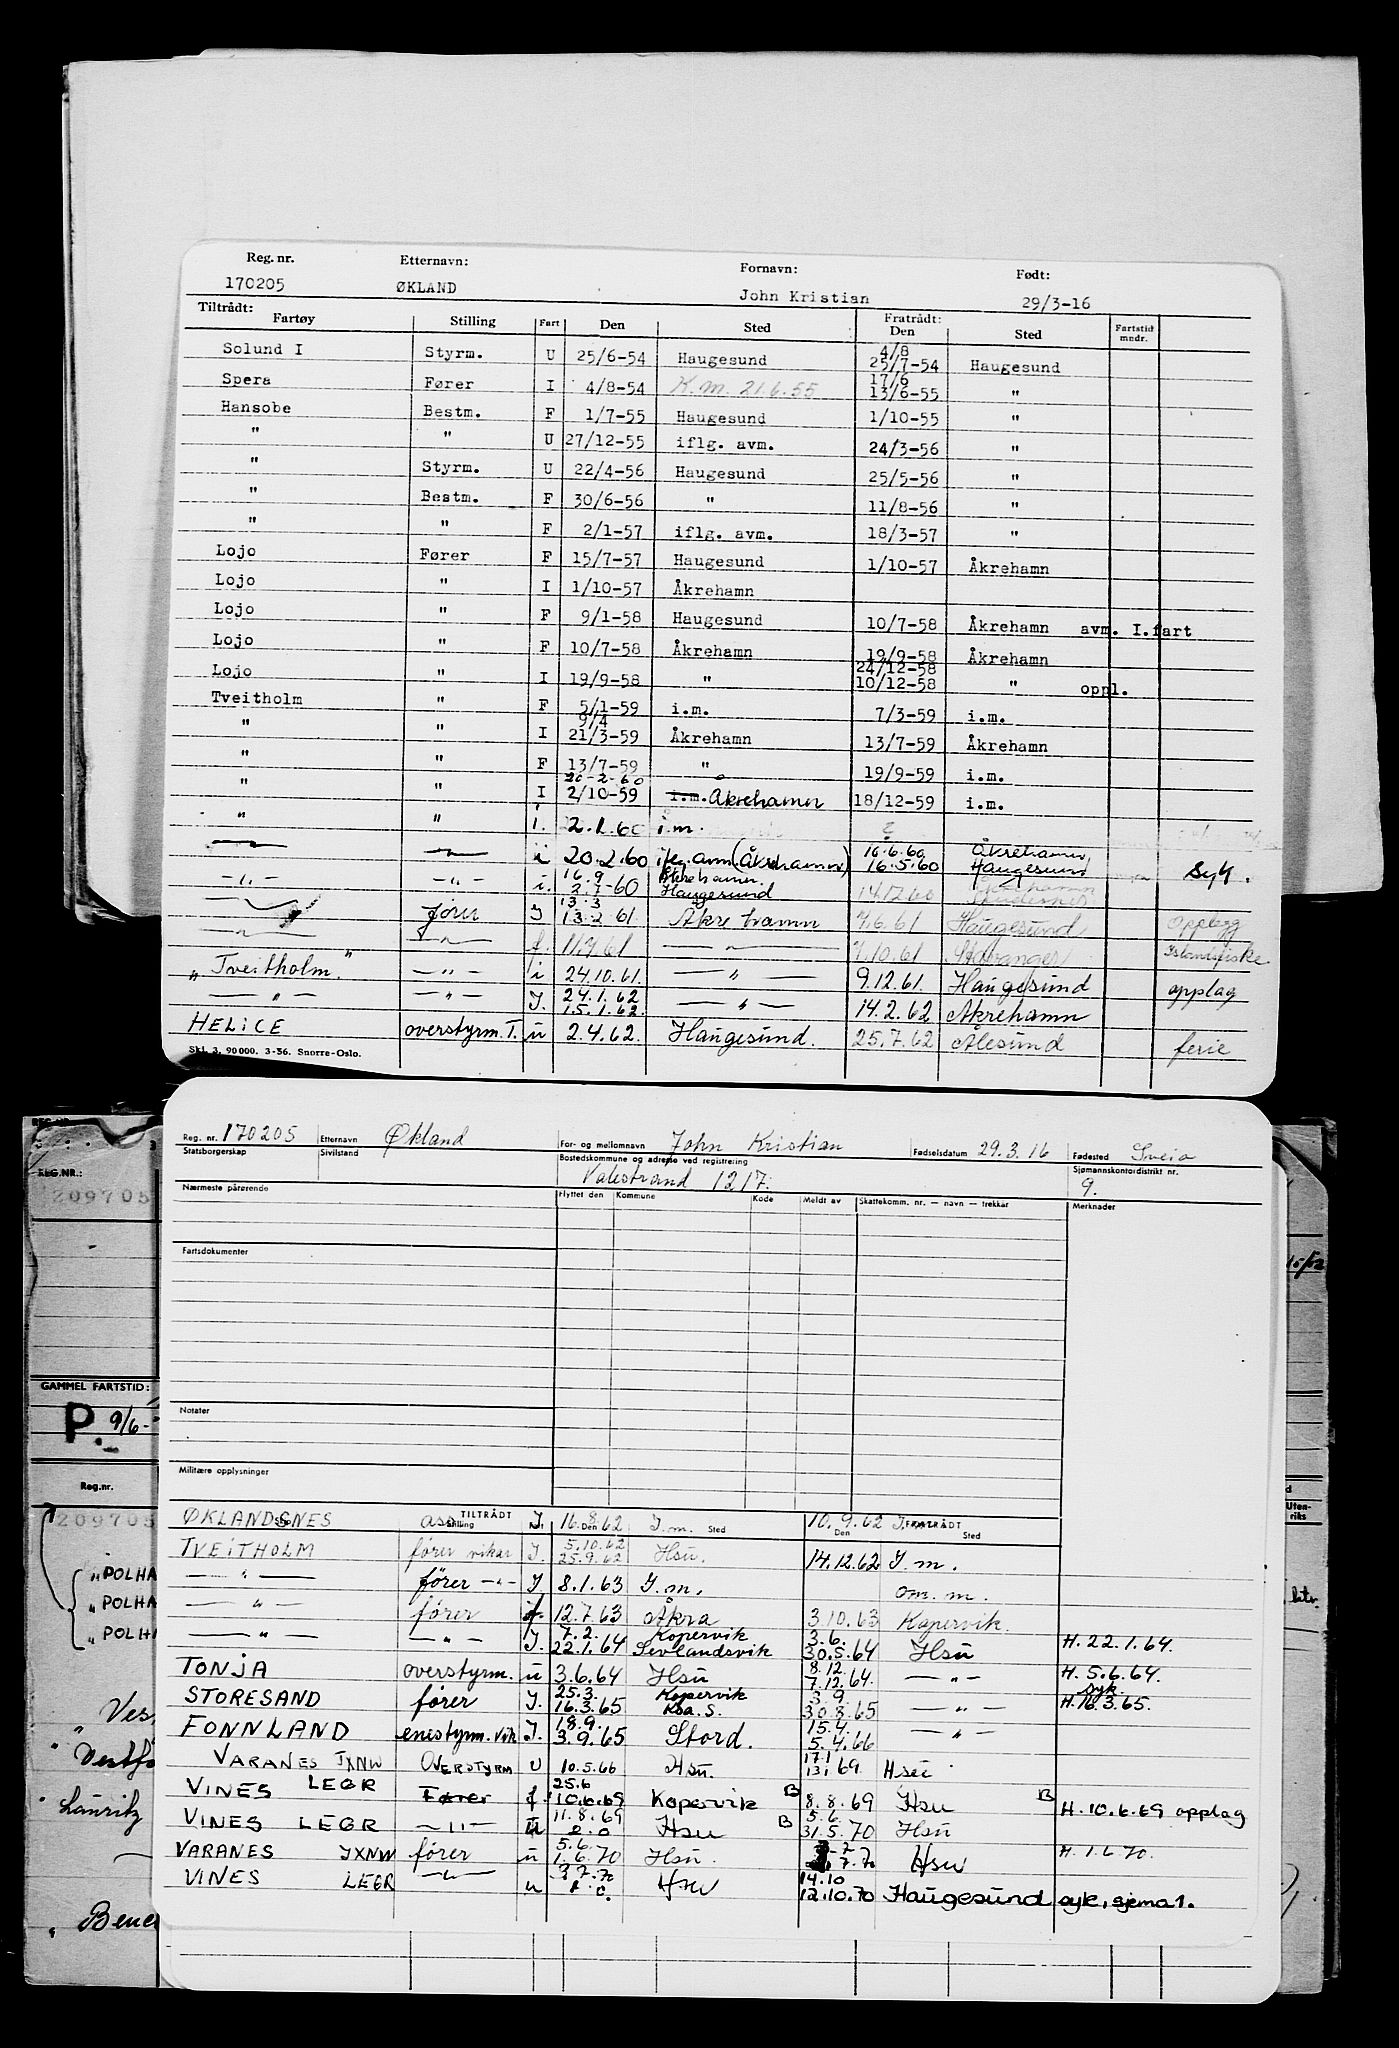 Reg. nr. Etternavn: Fornavn: Født:
170205 ØKLAND John Kristian 29/3-16
Tiltrådt: Fratrådt:
Fartøy Stilling Fart Den Sted Den Sted Fartstid mndr.
Solund I Styrm. U 25/6-54 Haugesund 4/8 25/7-54 Haugesund
Spera Fører I 4/8-54 K.m. 21.6.55 17/6 13/6-55 "
Hansobe Bestm. F 1/7-55 Haugesund 1/10-55 "
" " U 27/12-55 iflg. avm. 24/3-56 "
" Styrm. U 22/4-56 Haugesund 25/5-56 "
" Bestm. F 30/6-56 " 11/8-56 "
" " F 2/1-57 iflg. avm. 18/3-57 "
Lojo Fører F 15/7-57 Haugesund 1/10-57 Åkrehamn
Lojo " I 1/10-57 Åkrehamn
Lojo " F 9/1-58 Haugesund 10/7-58 Åkrehamn avm. I.fart
Lojo " F 10/7-58 Åkrehamn 19/9-58 Åkrehamn
Lojo " I 19/9-58 " 24/12-58 10/12-58 " oppl.
Tveitholm " F 5/1-59 i.m. 7/3-59 i.m.
" " I 9/4 21/3-59 Åkrehamn 13/7-59 Åkrehamn
" " F 13/7-59 " 19/9-59 i.m.
" " I 20-2-60 2/10-59 i.m. Åkrehamn 18/12-59 i.m.
" " i. 22.1.60 i.m.
— — i 20.2.60 ifg. avm. (Åkrehamn) 16.6.60 16.5.60 Åkrehamn Haugesund syk.
-"- -"- i. 16.9 2.7-60 Åkrehamn Haugesund 14.12.60
— fører I 13.3 13.2.61 Åkrehamn 7.6.61 Haugesund Opplegg
-"- -"- f. 11.7.61 -"- 7.10.61 Stavanger Islandsfiske
"Tveitholm" -"- i 24.10.61. -"- 9.12.61. Haugesund opplag
-"- -"- I. 24.1.62 15.1.62. -"- 14.2.62 Åkrehamn
HELICE overstyrm. T. u 2.4.62. Haugesund. 25.7.62 Ålesund ferie
Skl. 3. 90000. 3-56. Snorre-Oslo.
Reg. nr. 170205 Etternavn Økland For- og mellomnavn John Kristian Fødselsdatum 29.3.16 Fødested Sveio
Statsborgerskap Sivilstand Bostedskommune og adresse ved registrering Valestrand 1217. Sjømannskontordistrikt nr. 9.
Nærmeste pårørende Flyttet den Kommune Kode Meldt av Skattekomm. nr. — navn — trekkar Merknader
Fartsdokumenter
Notater
Militære opplysninger
TILTRÅDT FRATRÅDT
Stilling Fart Den Sted Den Sted
ØKLANDSNES ass. I 16.8.62 I.m. 10.9.62 I.m.
TVEITHOLM fører vikar I. 5.10.62 25.9.62 Hsu. 14.12.62 I.m.
-"- fører -"- I 8.1.63 I.m. om. m.
-"- fører f. 12.7.63 Åkra 3.10.63 Kopervik.
-"- -"- I. 7.2. 22.1.64 Kopervik Sevlandsvik 3.6. 30.5.64 Hsu H. 22.1.64.
TONJA overstyrm. u 3.6.64 Hsu 8.12 7.12.64. -"- H. 5.6.64.
STORESAND fører I. 25.3. 16.3.65 Kopervik Koa. S. 3.9. 30.8.65 -"- syk. H. 16.3.65.
FONNLAND enestyrm. vik I. 18.9. 3.9.65 Stord. 15.4. 5.4.66 -"-
VARANES JXNW OVERSTYRM U 10.5.66 Hsu. 17.1 13.1 69. Hsu
VINES LEGR Fører f. 25.6 10.6.69 Kopervik B 8.8.69 Hsu B H. 10.6.69 opplag
VINES LEGR -"- u 11.8.69 Hsu B 5.6. 31.5.70 Hsu
VARANES JXNW fører u 5.6. 1.6.70 Hsu. 7.70 Hsu H. 1.6.70.
VINES LEGR -"- u 3.7.70 Hsu 14.10 12.10.70 Haugesund syk, sjema 1.
REG.NR.:
209705
GAMMEL FARTSTID:
P. 9/6-
Reg.nr.
209705
"POLHA
"POLHA
"POLHA
Vestfo
Lauritz
Uten-
riks